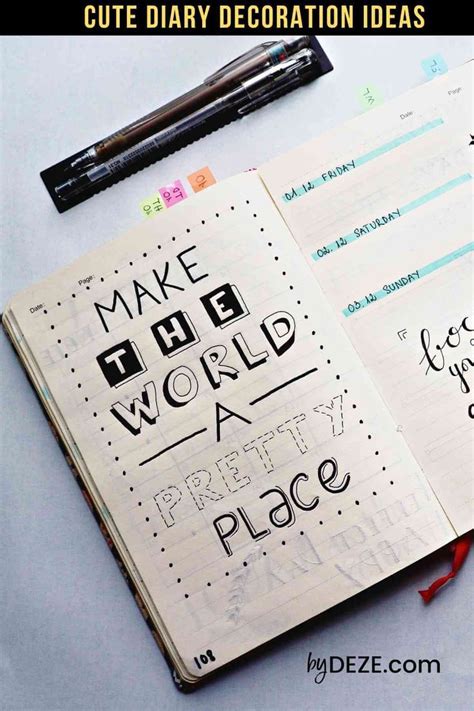 CUTE DIARY DECORATION IDEAS
Date: Page:
MAKE
THE
WORLD
A
PRETTY
PLACE
108
Date:
01.12 FRIDAY
02.12 SATURDAY
03.12 SUNDAY
byDEZE.com